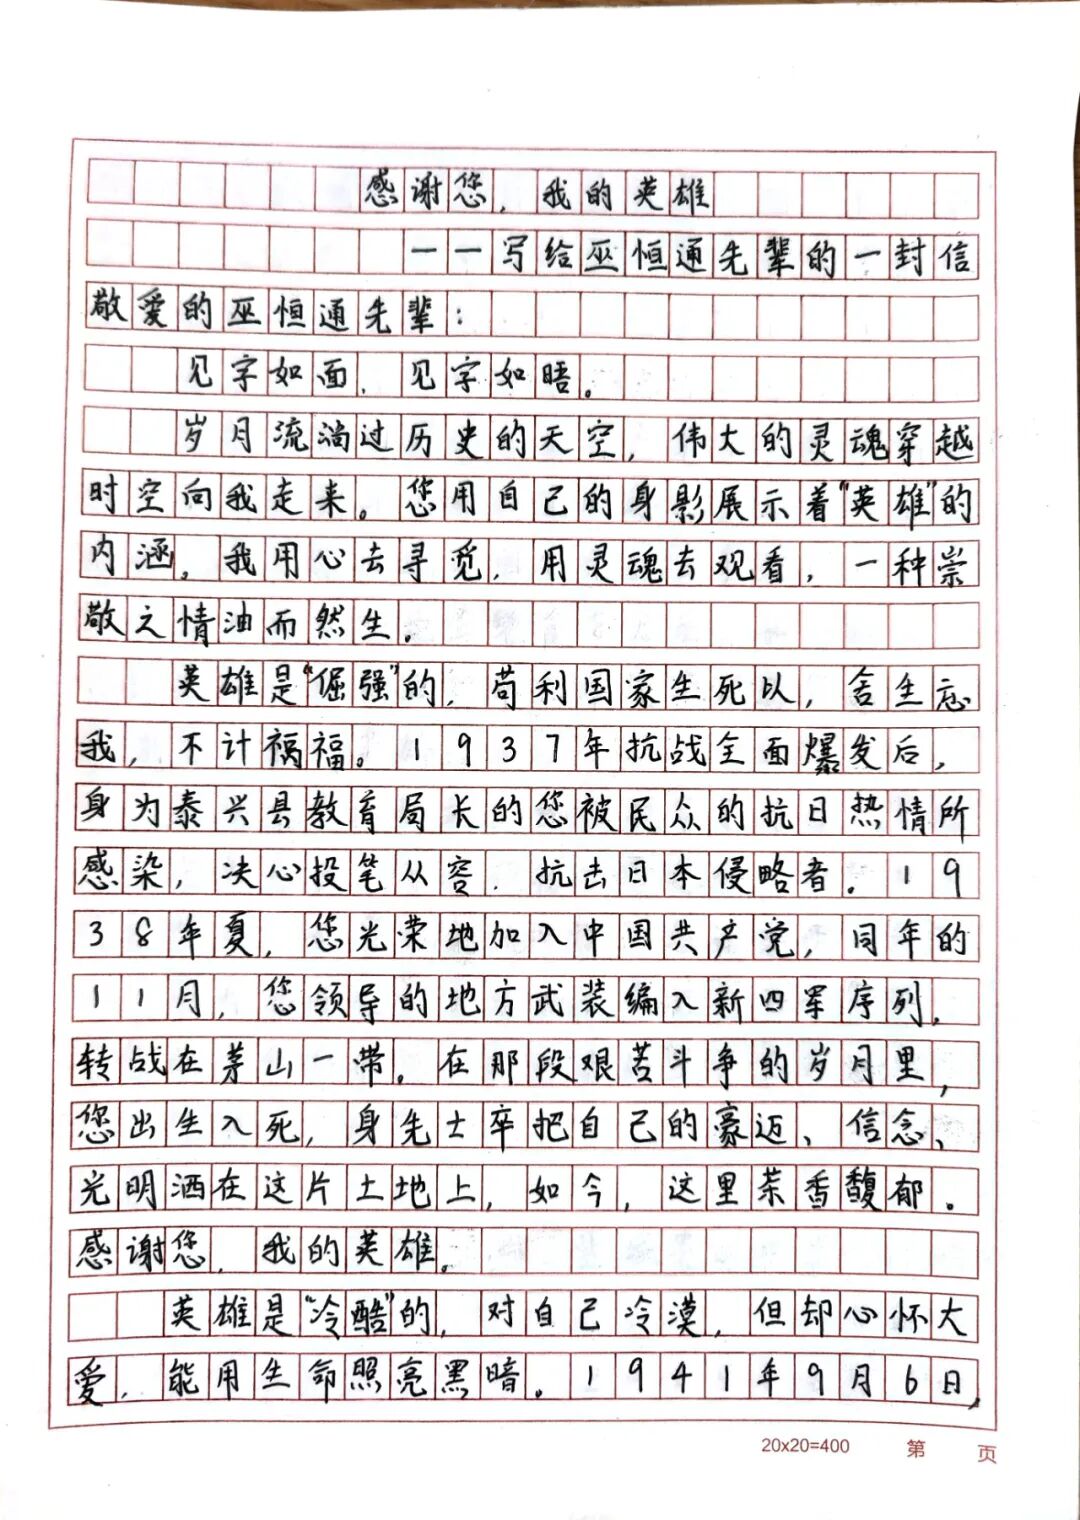 感谢您，我的英雄
——写给巫恒通先辈的一封信
敬爱的巫恒通先辈：
见字如面，见字如晤。
岁月流淌过历史的天空，伟大的灵魂穿越
时空向我走来。您用自己的身影展示着“英雄”的
内涵。我用心去寻觅，用灵魂去观看，一种崇
敬之情油而然生。
英雄是“倔强”的，苟利国家生死以，舍生忘
我，不计祸福。1937年抗战全面爆发后，
身为泰兴县教育局长的您被民众的抗日热情所
感染，决心投笔从容，抗击日本侵略者。19
38年夏，您光荣地加入中国共产党，同年的
11月，您领导的地方武装编入新四军序列，
转战在茅山一带。在那段艰苦斗争的岁月里，
您出生入死，身先士卒把自己的豪迈、信念、
光明洒在这片土地上，如今，这里茶香馥郁。
感谢您，我的英雄。
英雄是“冷酷”的，对自己冷漠，但却心怀大
爱，能用生命照亮黑暗。1941年9月6日，
20x20=400 第 页